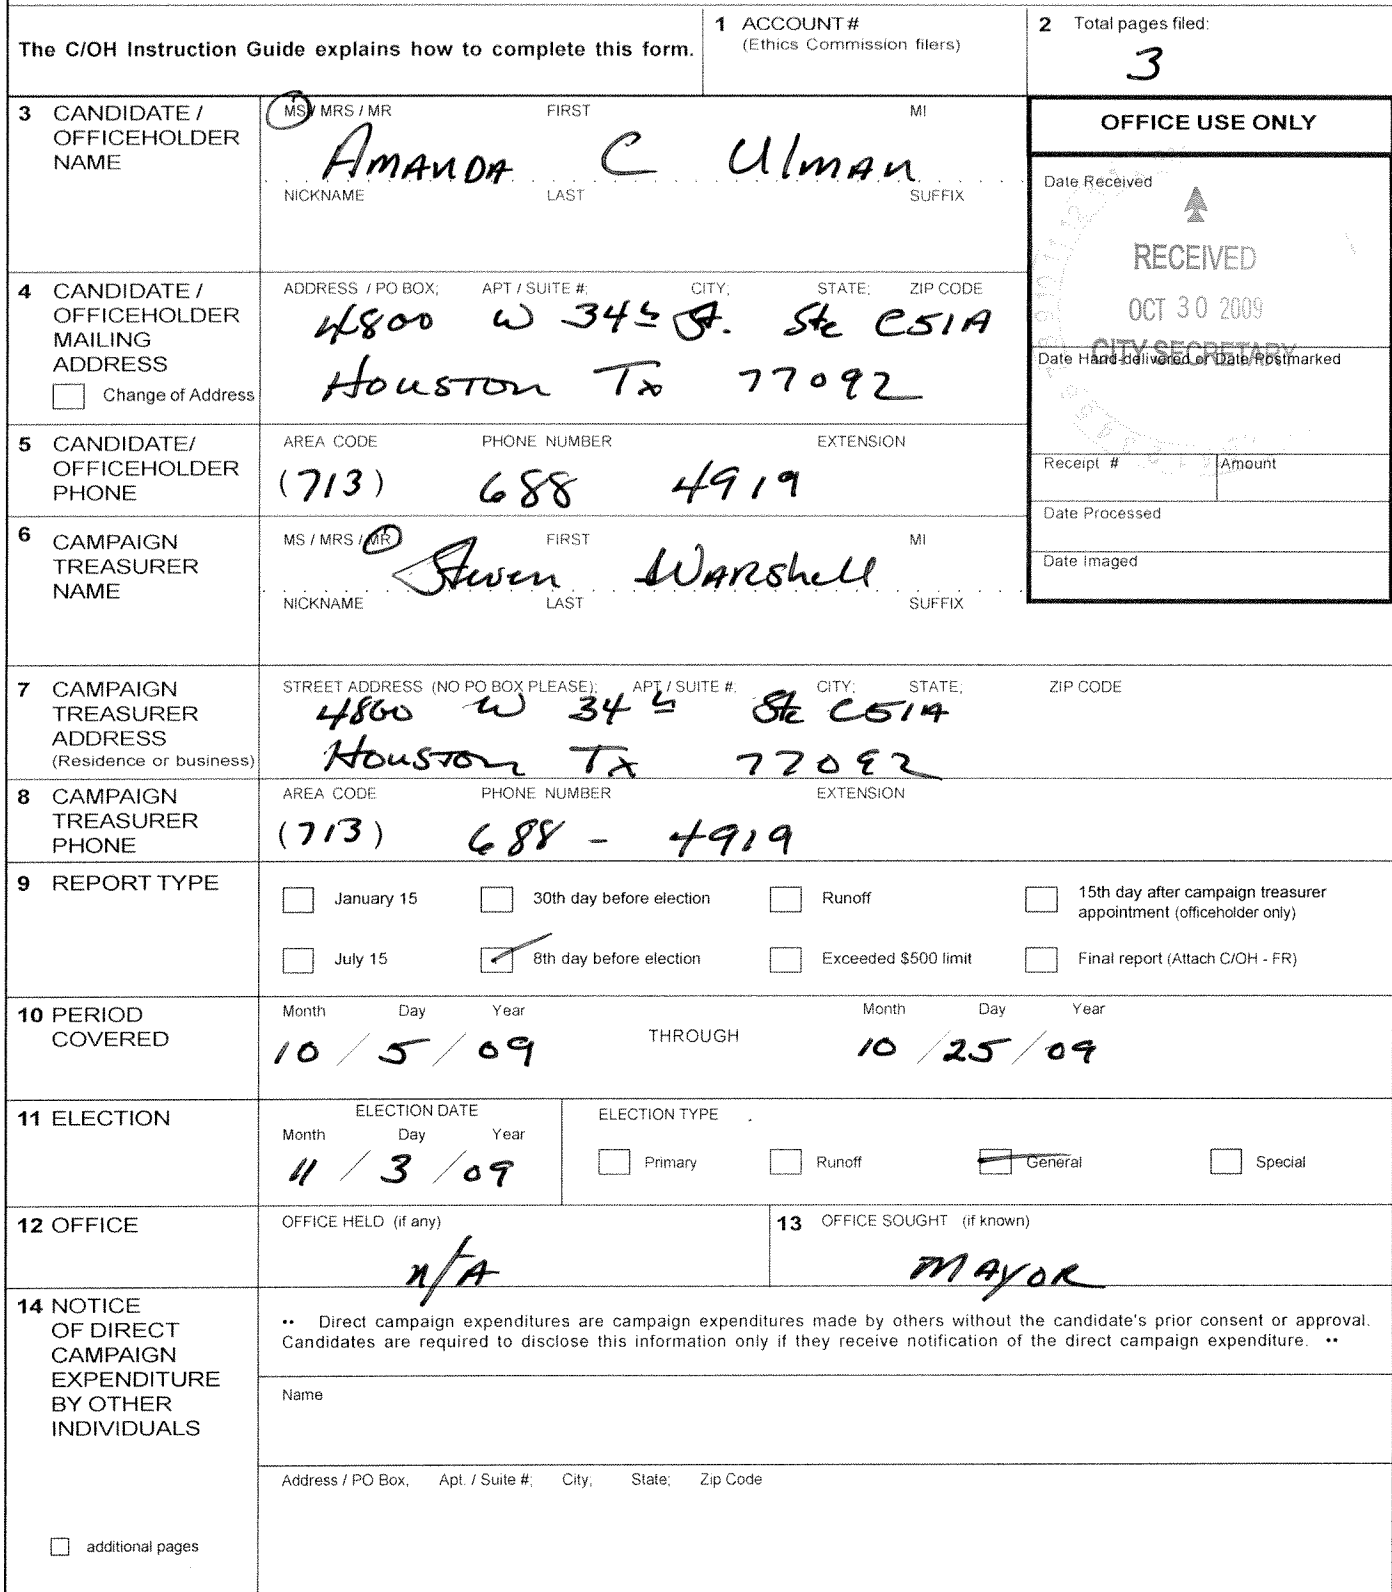 The C/OH Instruction Guide explains how to complete this form.
1 ACCOUNT #
(Ethics Commission filers)
2 Total pages filed:
3
3 CANDIDATE /
OFFICEHOLDER
NAME
MS / MRS / MR FIRST MI
AMANDA C Ulman
NICKNAME LAST SUFFIX
OFFICE USE ONLY
Date Received
RECEIVED
OCT 30 2009
CITY SECRETARY
Date Hand-delivered or Date Postmarked
Receipt # Amount
Date Processed
Date Imaged
4 CANDIDATE /
OFFICEHOLDER
MAILING
ADDRESS
Change of Address
ADDRESS / PO BOX; APT / SUITE #; CITY; STATE; ZIP CODE
4800 W 34th St. Ste C51A
Houston Tx 77092
5 CANDIDATE/
OFFICEHOLDER
PHONE
AREA CODE PHONE NUMBER EXTENSION
(713) 688 4919
6 CAMPAIGN
TREASURER
NAME
MS / MRS / MR FIRST MI
Steven Warshell
NICKNAME LAST SUFFIX
7 CAMPAIGN
TREASURER
ADDRESS
(Residence or business)
STREET ADDRESS (NO PO BOX PLEASE); APT / SUITE #; CITY; STATE; ZIP CODE
4800 W 34th Ste C51A
Houston Tx 77092
8 CAMPAIGN
TREASURER
PHONE
AREA CODE PHONE NUMBER EXTENSION
(713) 688 - 4919
9 REPORT TYPE
January 15 30th day before election Runoff 15th day after campaign treasurer
appointment (officeholder only)
July 15 8th day before election Exceeded $500 limit Final report (Attach C/OH - FR)
10 PERIOD
COVERED
Month Day Year THROUGH Month Day Year
10 / 5 / 09 10 / 25 / 09
11 ELECTION
ELECTION DATE
Month Day Year
11 / 3 / 09
ELECTION TYPE
Primary Runoff General Special
12 OFFICE
OFFICE HELD (if any)
n/A
13 OFFICE SOUGHT (if known)
MAYOR
14 NOTICE
OF DIRECT
CAMPAIGN
EXPENDITURE
BY OTHER
INDIVIDUALS
•• Direct campaign expenditures are campaign expenditures made by others without the candidate's prior consent or approval.
Candidates are required to disclose this information only if they receive notification of the direct campaign expenditure. ••
Name
Address / PO Box; Apt. / Suite #; City; State; Zip Code
additional pages